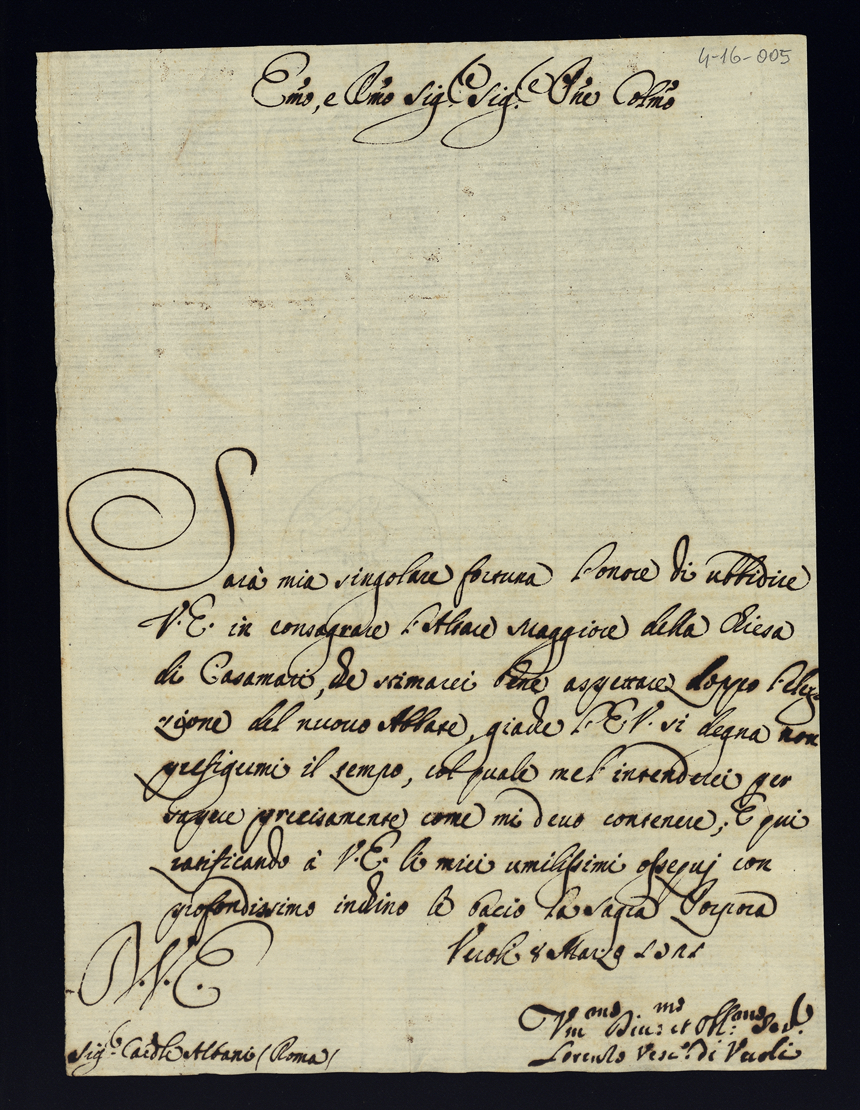 4-16-005
Emo, e Rmo Sig.re Sig.re Pne Colmo
Sarà mia singolare fortuna l'onore di ubbidire
V.E. in consagrare l'Altare Maggiore della Chiesa
di Casamari, che stimarei bene aspettare doppo l'elez-
zione del nuovo Abbate, giache l'E.V. si degna non
prefigermi il tempo, col quale me l'intenderei per
sapere precisamente come mi devo contenere; E qui
ratificando à V.E. li miei umilissimi ossequj con
profondissimo inchino le bacio la Sagra Porpora
Veroli 8 Marzo
D. V. E.
Vmmo Divmo et Obbmo Ser.re
Sig.r Cardle Albani (Roma)
Lorenzo Vesc.o di Veroli